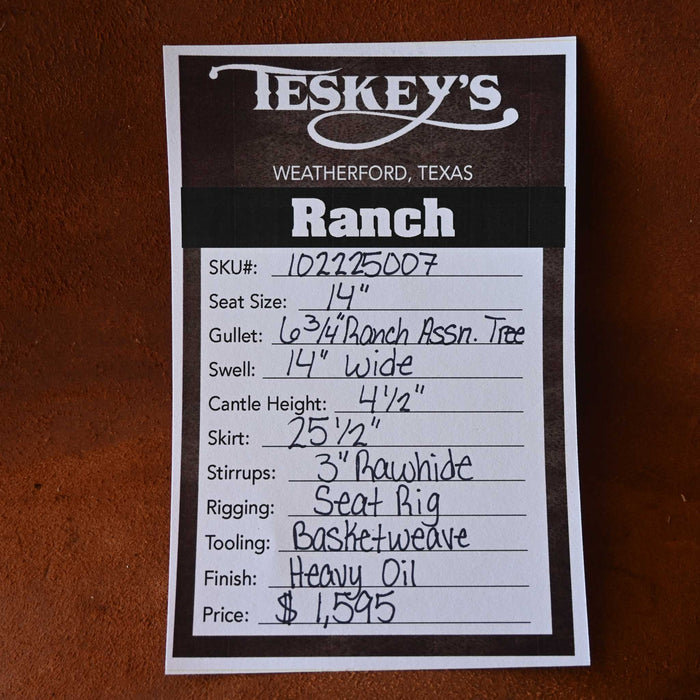 TESKEY'S
WEATHERFORD, TEXAS
Ranch
SKU#: 102225007
Seat Size: 14"
Gullet: 6 3/4" Ranch Assn. Tree
Swell: 14" wide
Cantle Height: 4 1/2"
Skirt: 25 1/2"
Stirrups: 3" Rawhide
Rigging: Seat Rig
Tooling: Basketweave
Finish: Heavy Oil
Price: $ 1,595